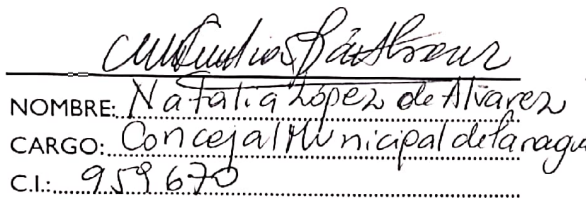 NOMBRE: Natalia López de Alvarez
CARGO: Concejal Municipal de
C.I.: 959670